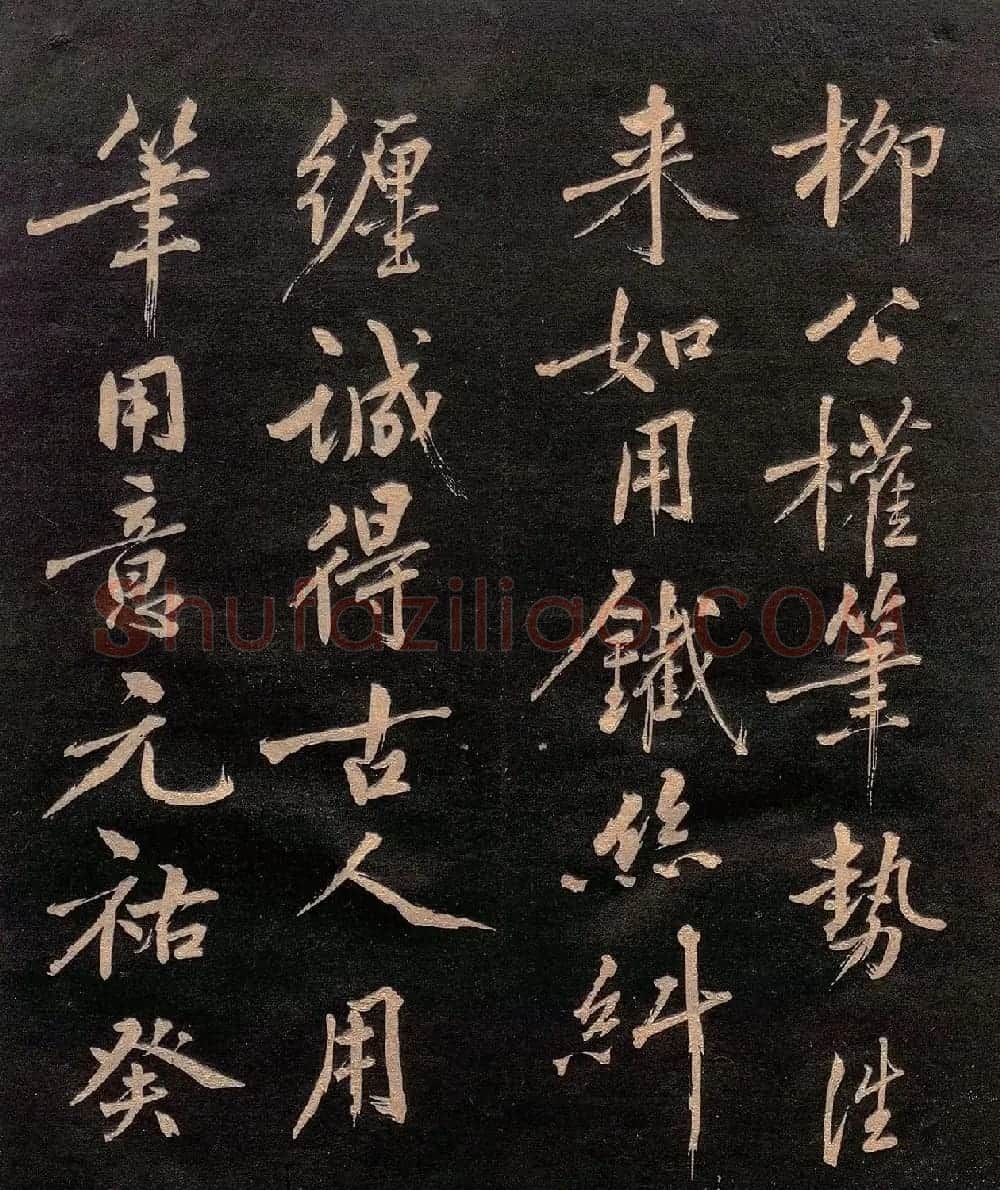 柳公權筆勢往
来如用鐵絲糾
纏誠得古人用
筆用意元祐癸
Shufaziliao.COM